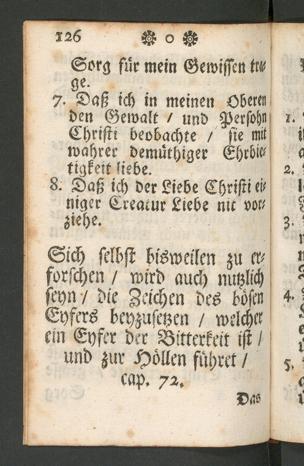 126 o
Sorg für mein Gewissen tra-
ge.
7. Daß ich in meinen Oberen
den Gewalt / und Persohn
Christi beobachte / sie mit
wahrer demüthiger Ehrbie-
tigkeit liebe.
8. Daß ich der Liebe Christi ei-
niger Creatur Liebe nit vor-
ziehe.
Sich selbst bisweilen zu er-
forschen / wird auch nutzlich
seyn / die Zeichen des bösen
Eyfers beyzusetzen / welcher
ein Eyfer der Bitterkeit ist /
und zur Höllen führet /
cap. 72.
Das